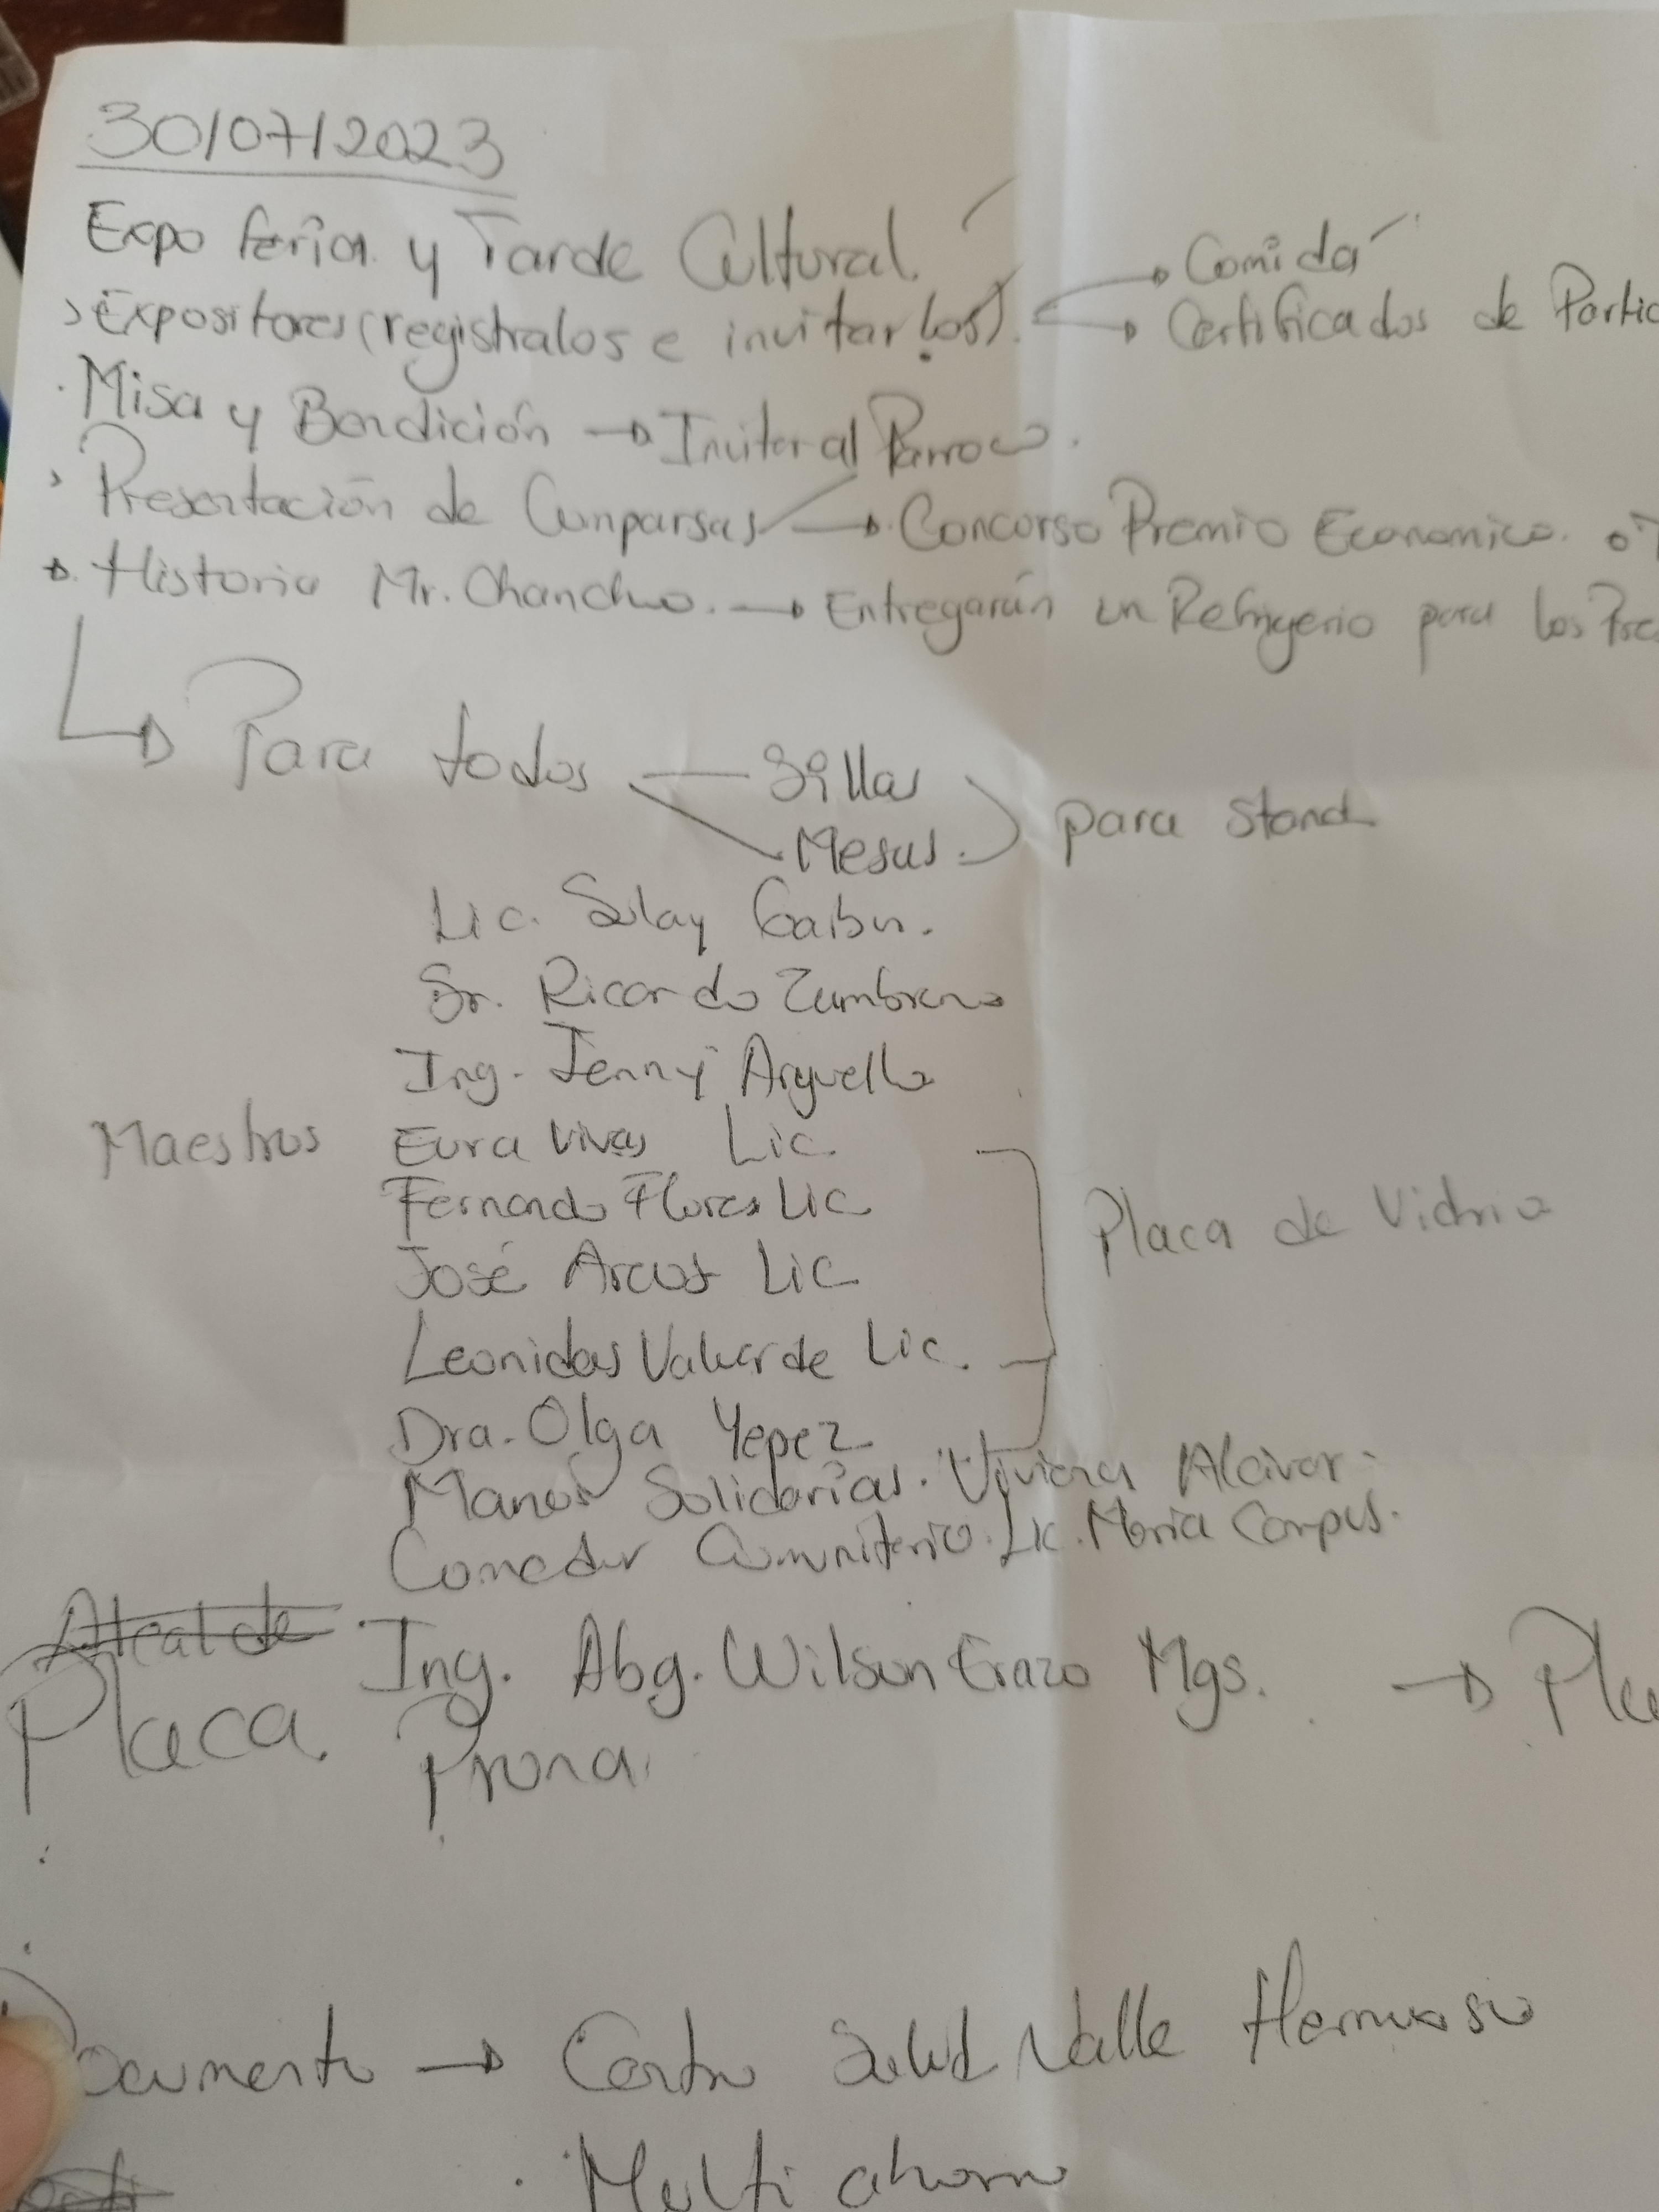 30/07/2023
Expo feria y Tarde Cultural.
Expositores (registralos e invitarlos). → Comida
→ Certificados de Partic
Misa y Bendición → Invitar al Parroco.
Presentación de Comparsas → Concurso Premio Economico. o T
Historia Mr. Chancho. → Entregarán un Refrigerio para los Pre
→ Para todos Sillas
Mesas. para stand
Lic. Solay Gaibor.
Sr. Ricardo Zambrano
Ing. Jenny Arguello
Maestros Eura Vivas Lic.
Fernando Flores Lic
Placa de Vidrio
José Arcos Lic
Leonidas Valverde Lic.
Dra. Olga Yepez
Manos Solidarias. Viviana Alcivar.
Comedor Comunitario. Lic. Maria Campus.
Alcalde Ing. Abg. Wilson Erazo Mgs. → Pla
Placa. Prona.
Documento → Centro Salud Valle Hermoso
Multi ahorro